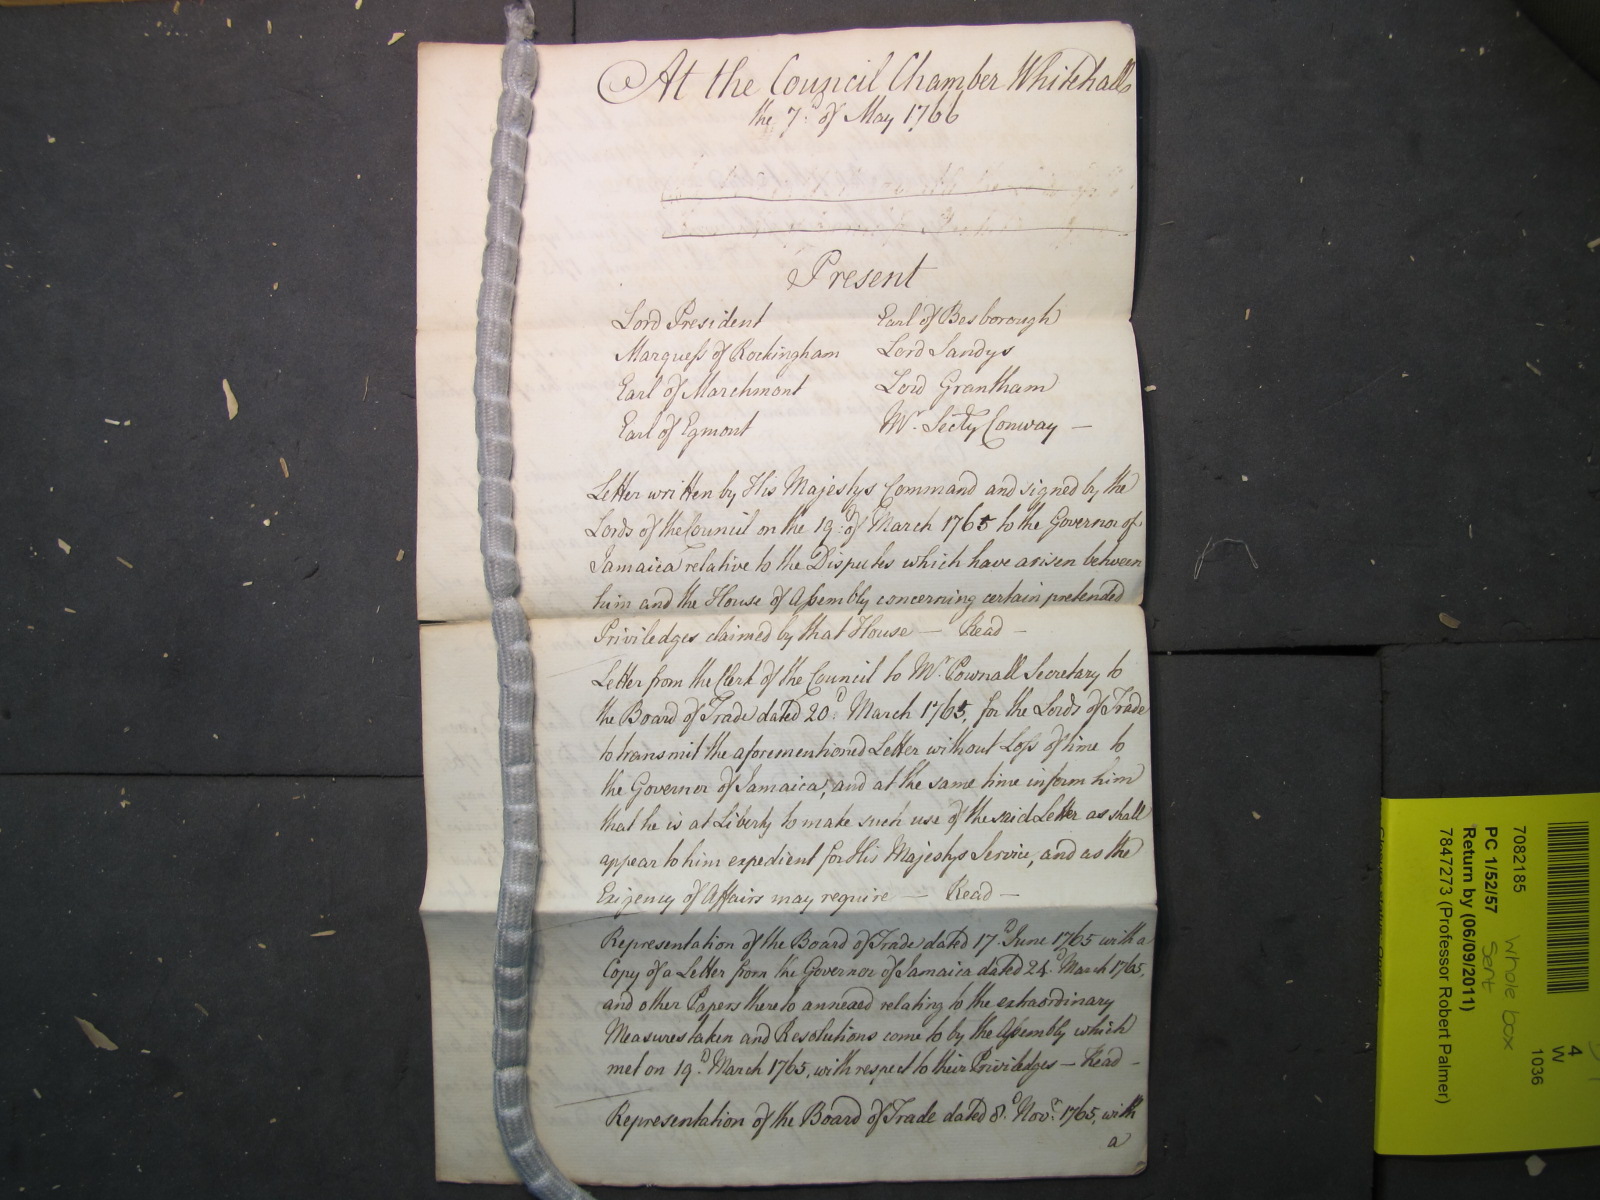 At the Council Chamber Whitehall
the 7.th of May 1766
Present
Lord President
Marquess of Rockingham
Earl of Marchmont
Earl of Egmont
Earl of Besborough
Lord Sandys
Lord Grantham
Mr. Secty Conway —
Letter written by His Majestys Command and signed by the
Lords of the Council on the 19.th of March 1765 to the Governor of
Jamaica relative to the Disputes which have arisen between
him and the House of Assembly concerning certain pretended
Priviledges claimed by that House — Read —
Letter from the Clerk of the Council to Mr. Pownall Secretary to
the Board of Trade dated 20.th March 1765, for the Lords of Trade
to transmit the aforementioned Letter without Loss of time to
the Governor of Jamaica, and at the same time inform him
that he is at Liberty to make such use of the said Letter as shall
appear to him expedient for His Majestys Service, and as the
Exigency of Affairs may require — Read —
Representation of the Board of Trade dated 17.th June 1765 with a
Copy of a Letter from the Governor of Jamaica dated 24.th March 1765,
and other Papers thereto annexed relating to the extraordinary
Measures taken and Resolutions come to by the Assembly which
met on 19.th March 1765, with respect to their Priviledges — Read —
Representation of the Board of Trade dated 8.th Novr. 1765, with
a
7082185
PC 1/52/57
Return by (06/09/2011)
7847273 (Professor Robert Palmer)
whole box
sent
4
W
1036